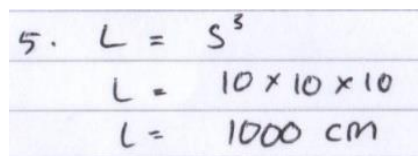 5. L = S³
L = 10 × 10 × 10
L = 1000 cm